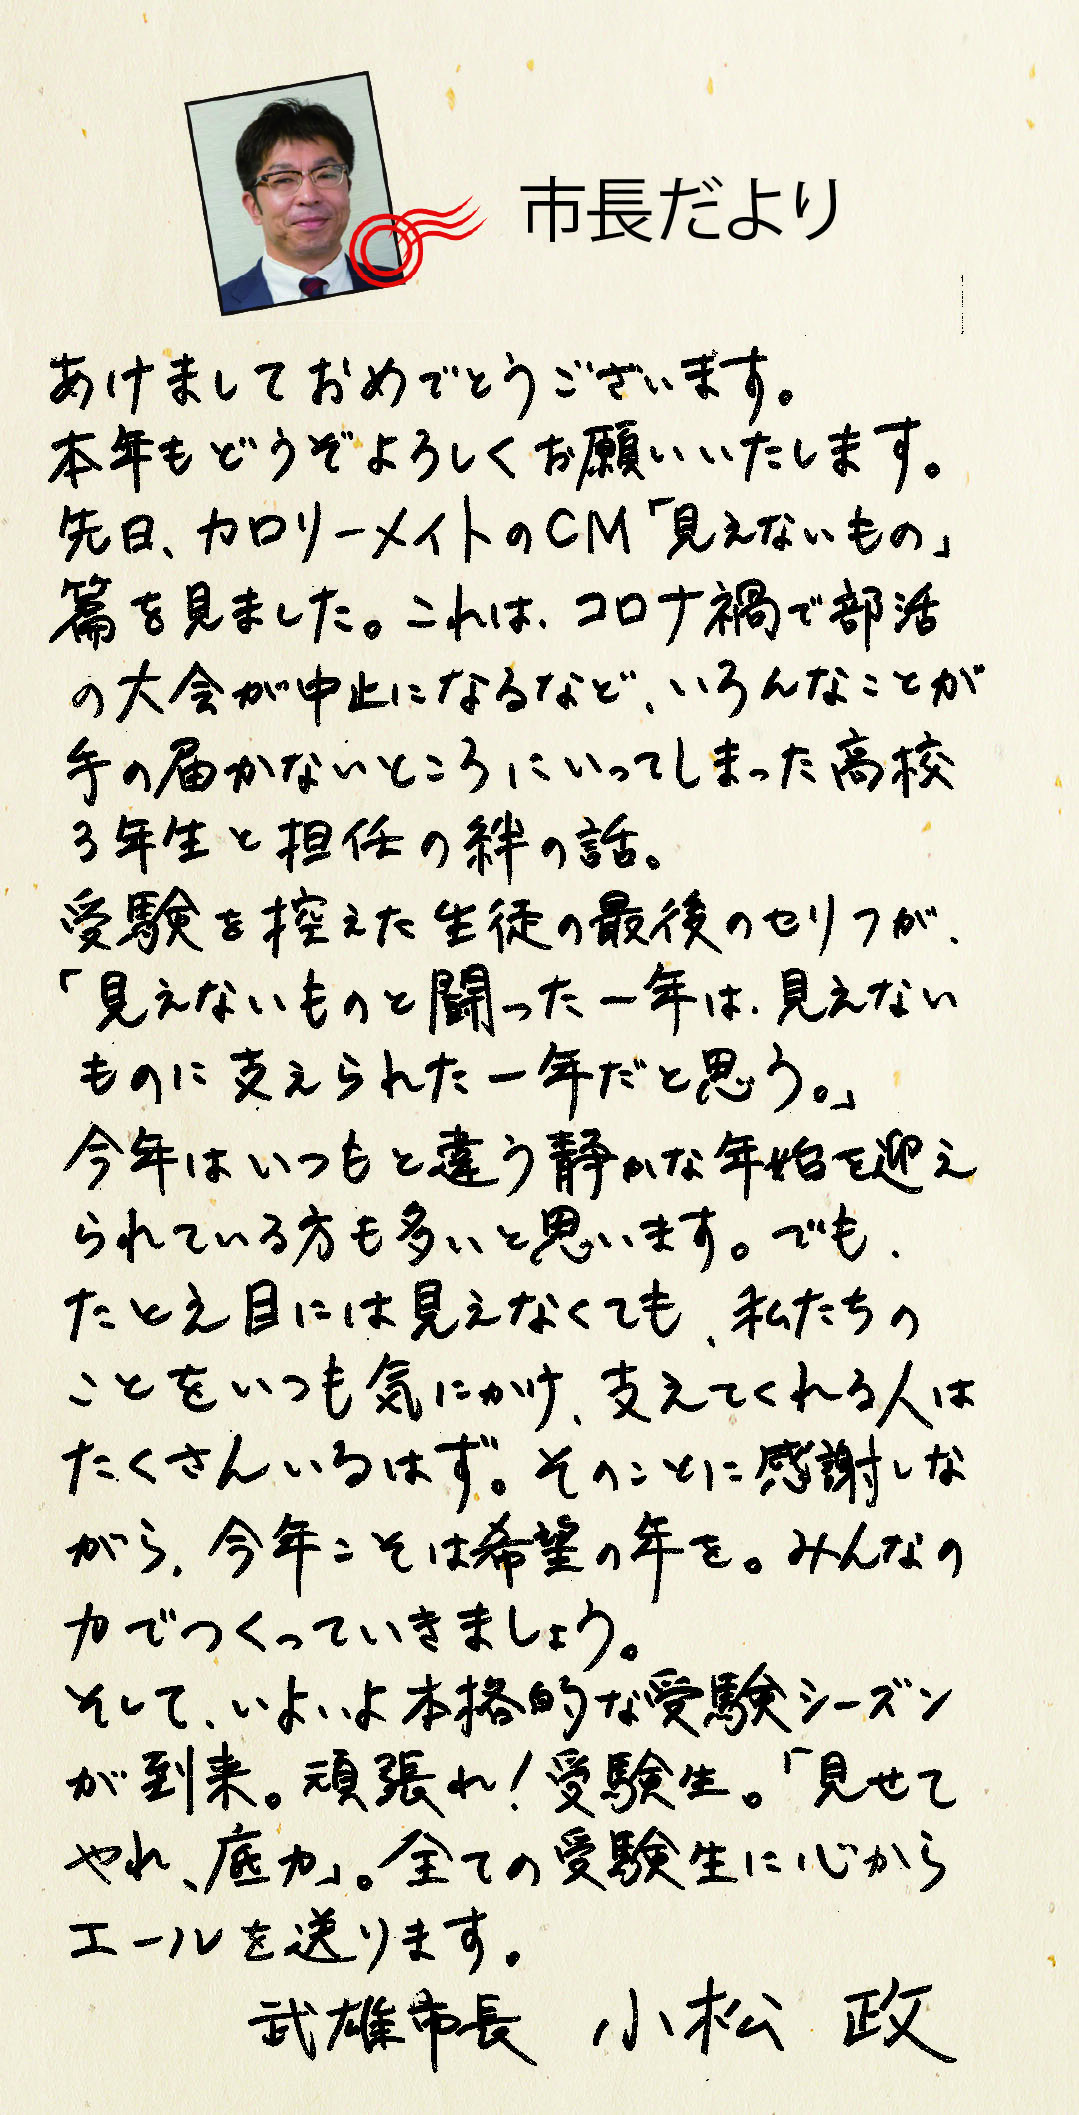 市長だより
あけましておめでとうございます。
本年もどうぞよろしくお願いいたします。
先日、カロリーメイトのCM「見えないもの」
篇を見ました。これは、コロナ禍で部活
の大会が中止になるなど、いろんなことが
手の届かないところにいってしまった高校
3年生と担任の絆の話。
受験を控えた生徒の最後のセリフが、
「見えないものと闘った一年は、見えない
ものに支えられた一年だと思う。」
今年はいつもと違う静かな年始を迎え
られている方も多いと思います。でも、
たとえ目には見えなくても、私たちの
ことをいつも気にかけ、支えてくれる人は
たくさんいるはず。そのことに感謝しな
がら、今年こそは希望の年を。みんなの
力でつくっていきましょう。
そして、いよいよ本格的な受験シーズン
が到来。頑張れ！受験生。「見せて
やれ、底力」。全ての受験生に心から
エールを送ります。
武雄市長 小松 政